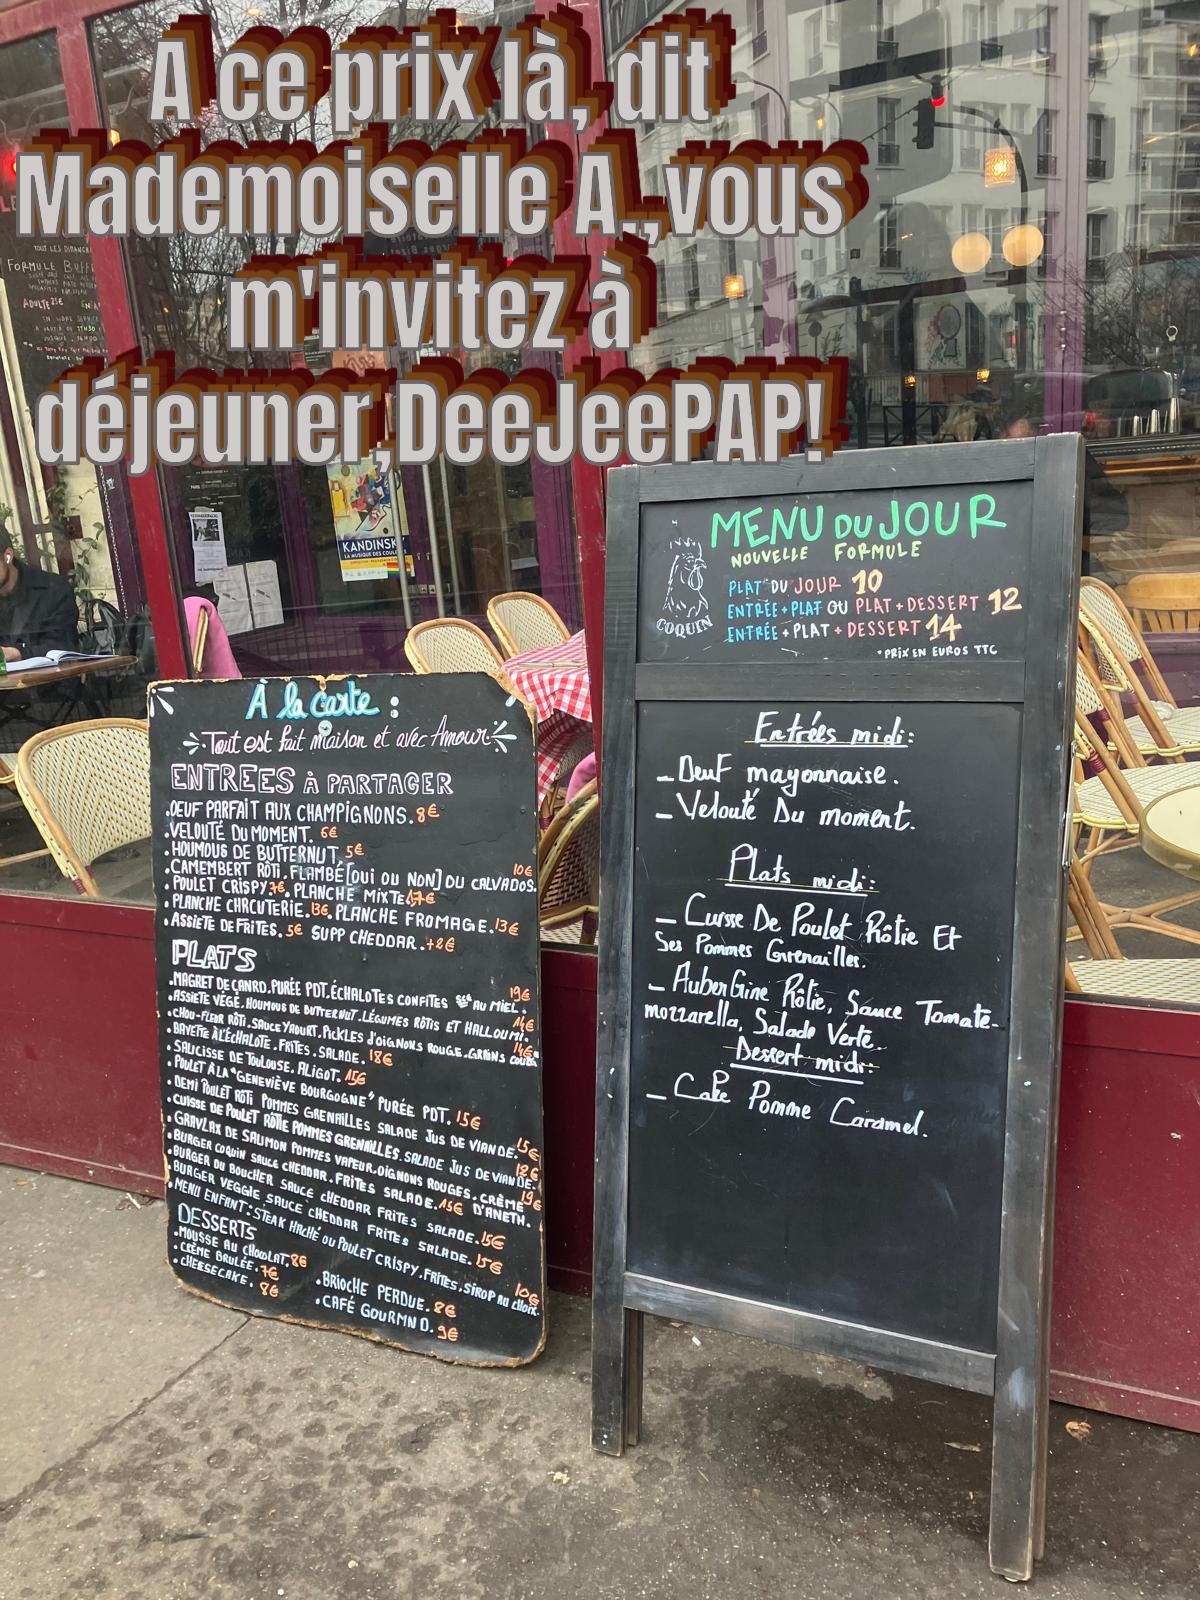 A ce prix là, dit
Mademoiselle A.,vous
m'invitez à
déjeuner,DeeJeePAP!
TOUS LES DIMANCHES
FORMULE BUFFET
ADULTE 25€
KANDINSKY
LA MUSIQUE DES COULEURS
MENU DU JOUR
NOUVELLE FORMULE
PLAT DU JOUR 10
ENTRÉE+PLAT OU PLAT+DESSERT 12
ENTRÉE+PLAT+DESSERT 14
*PRIX EN EUROS TTC
COQUIN
Entrées midi:
- Oeuf mayonnaise.
- Velouté Du moment.
Plats midi:
- Cuisse De Poulet Rôtie Et
Ses Pommes Grenailles.
- AuberGine Rôtie, Sauce Tomate-
mozzarella, Salade Verte.
Dessert midi:
- Cake Pomme Caramel.
À la carte :
Tout est fait maison et avec Amour
ENTREES À PARTAGER
.OEUF PARFAIT AUX CHAMPIGNONS. 8€
.VELOUTÉ DU MOMENT. 6€
.HOUMOUS DE BUTTERNUT. 5€
.CAMEMBERT RÔTI. FLAMBÉ [OUI OU NON] DU CALVADOS. 10€
.POULET CRISPY 7€. PLANCHE MIXTE 17€
.PLANCHE CHRCUTERIE. 13€. PLANCHE FROMAGE. 13€
.ASSIETE DE FRITES. 5€ SUPP CHEDDAR. +2€
PLATS
.MAGRET DE CANRD. PURÉE PDT. ÉCHALOTES CONFITES AU MIEL. 19€
.ASSIETE VÉGÉ. HOUMOUS DE BUTTERNUT. LÉGUMES RÔTIS ET HALLOUMI. 14€
.CHOU-FLEUR RÔTI. SAUCE YAOURT. PICKLES D'OIGNONS ROUGE. GRAINS COURGE 14€
.BAVETTE À L'ÉCHALOTE. FRITES. SALADE. 18€
.SAUCISSE DE TOULOUSE. ALIGOT. 15€
.POULET À LA "GENEVIÈVE BOURGOGNE" PURÉE PDT. 15€
.DEMI POULET RÔTI POMMES GRENAILLES SALADE JUS DE VIANDE. 15€
.CUISSE DE POULET RÔTIE POMMES GRENAILLES. SALADE JUS DE VIANDE. 12€
.GRAVLAX DE SAUMON POMMES VAPEUR. OIGNONS ROUGES. CRÈME D'ANETH. 19€
.BURGER COQUIN SAUCE CHEDDAR. FRITES SALADE. 15€
.BURGER DU BOUCHER SAUCE CHEDDAR FRITES SALADE. 15€
.BURGER VEGGIE SAUCE CHEDDAR FRITES SALADE. 15€
.MENU ENFANT: STEAK HACHÉ OU POULET CRISPY. FRITES. SIROP AU CHOIX. 10€
DESSERTS
.MOUSSE AU CHOCOLAT. 8€
.CRÈME BRULÉE. 7€
.CHEESECAKE. 8€
.BRIOCHE PERDUE. 8€
.CAFÉ GOURMND. 9€